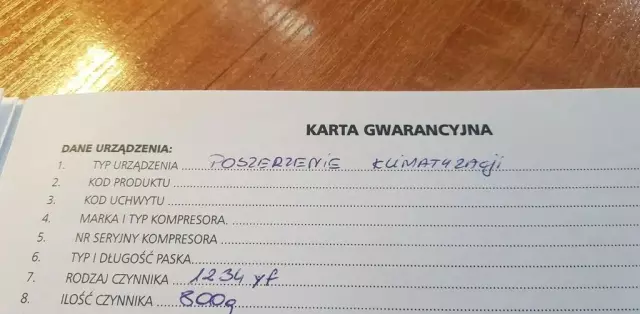 KARTA GWARANCYJNA
DANE URZĄDZENIA:
1. TYP URZĄDZENIA POSZERZENIE KLIMATYZACJI
2. KOD PRODUKTU
3. KOD UCHWYTU
4. MARKA I TYP KOMPRESORA.
5. NR SERYJNY KOMPRESORA
6. TYP I DŁUGOŚĆ PASKA
7. RODZAJ CZYNNIKA 1234 yf
8. ILOŚĆ CZYNNIKA 800g